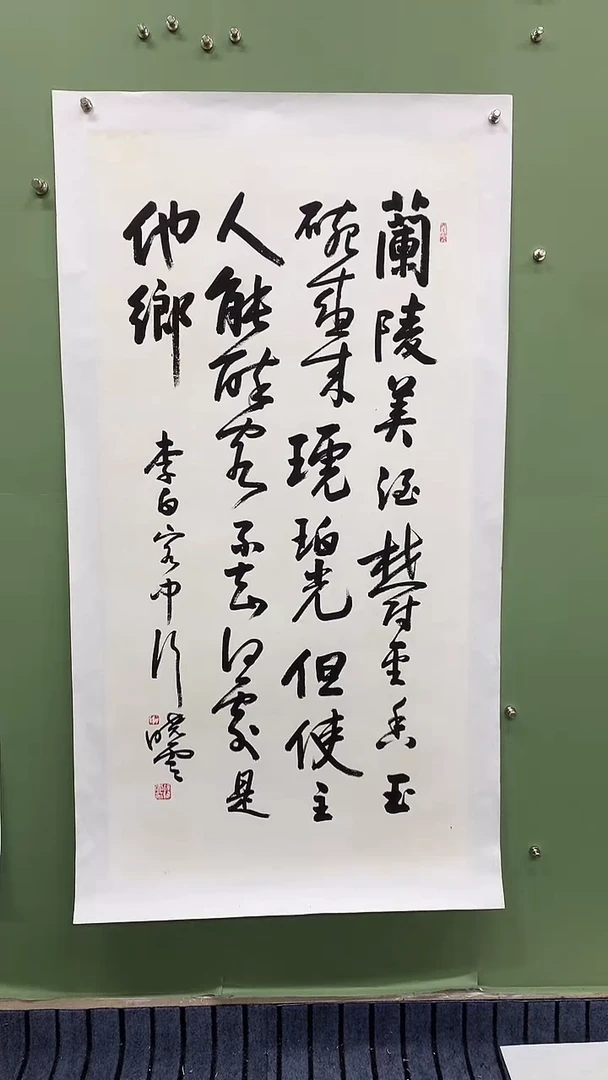 蘭陵美酒鬱金香玉
碗盛来琥珀光但使主
人能醉客不知何處是
他鄉
李白客中行
曉雲